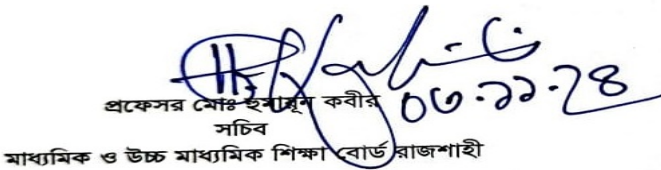 ০৩.১১.২৪
প্রফেসর মোঃ হুমায়ূন কবীর
সচিব
মাধ্যমিক ও উচ্চ মাধ্যমিক শিক্ষা বোর্ড রাজশাহী